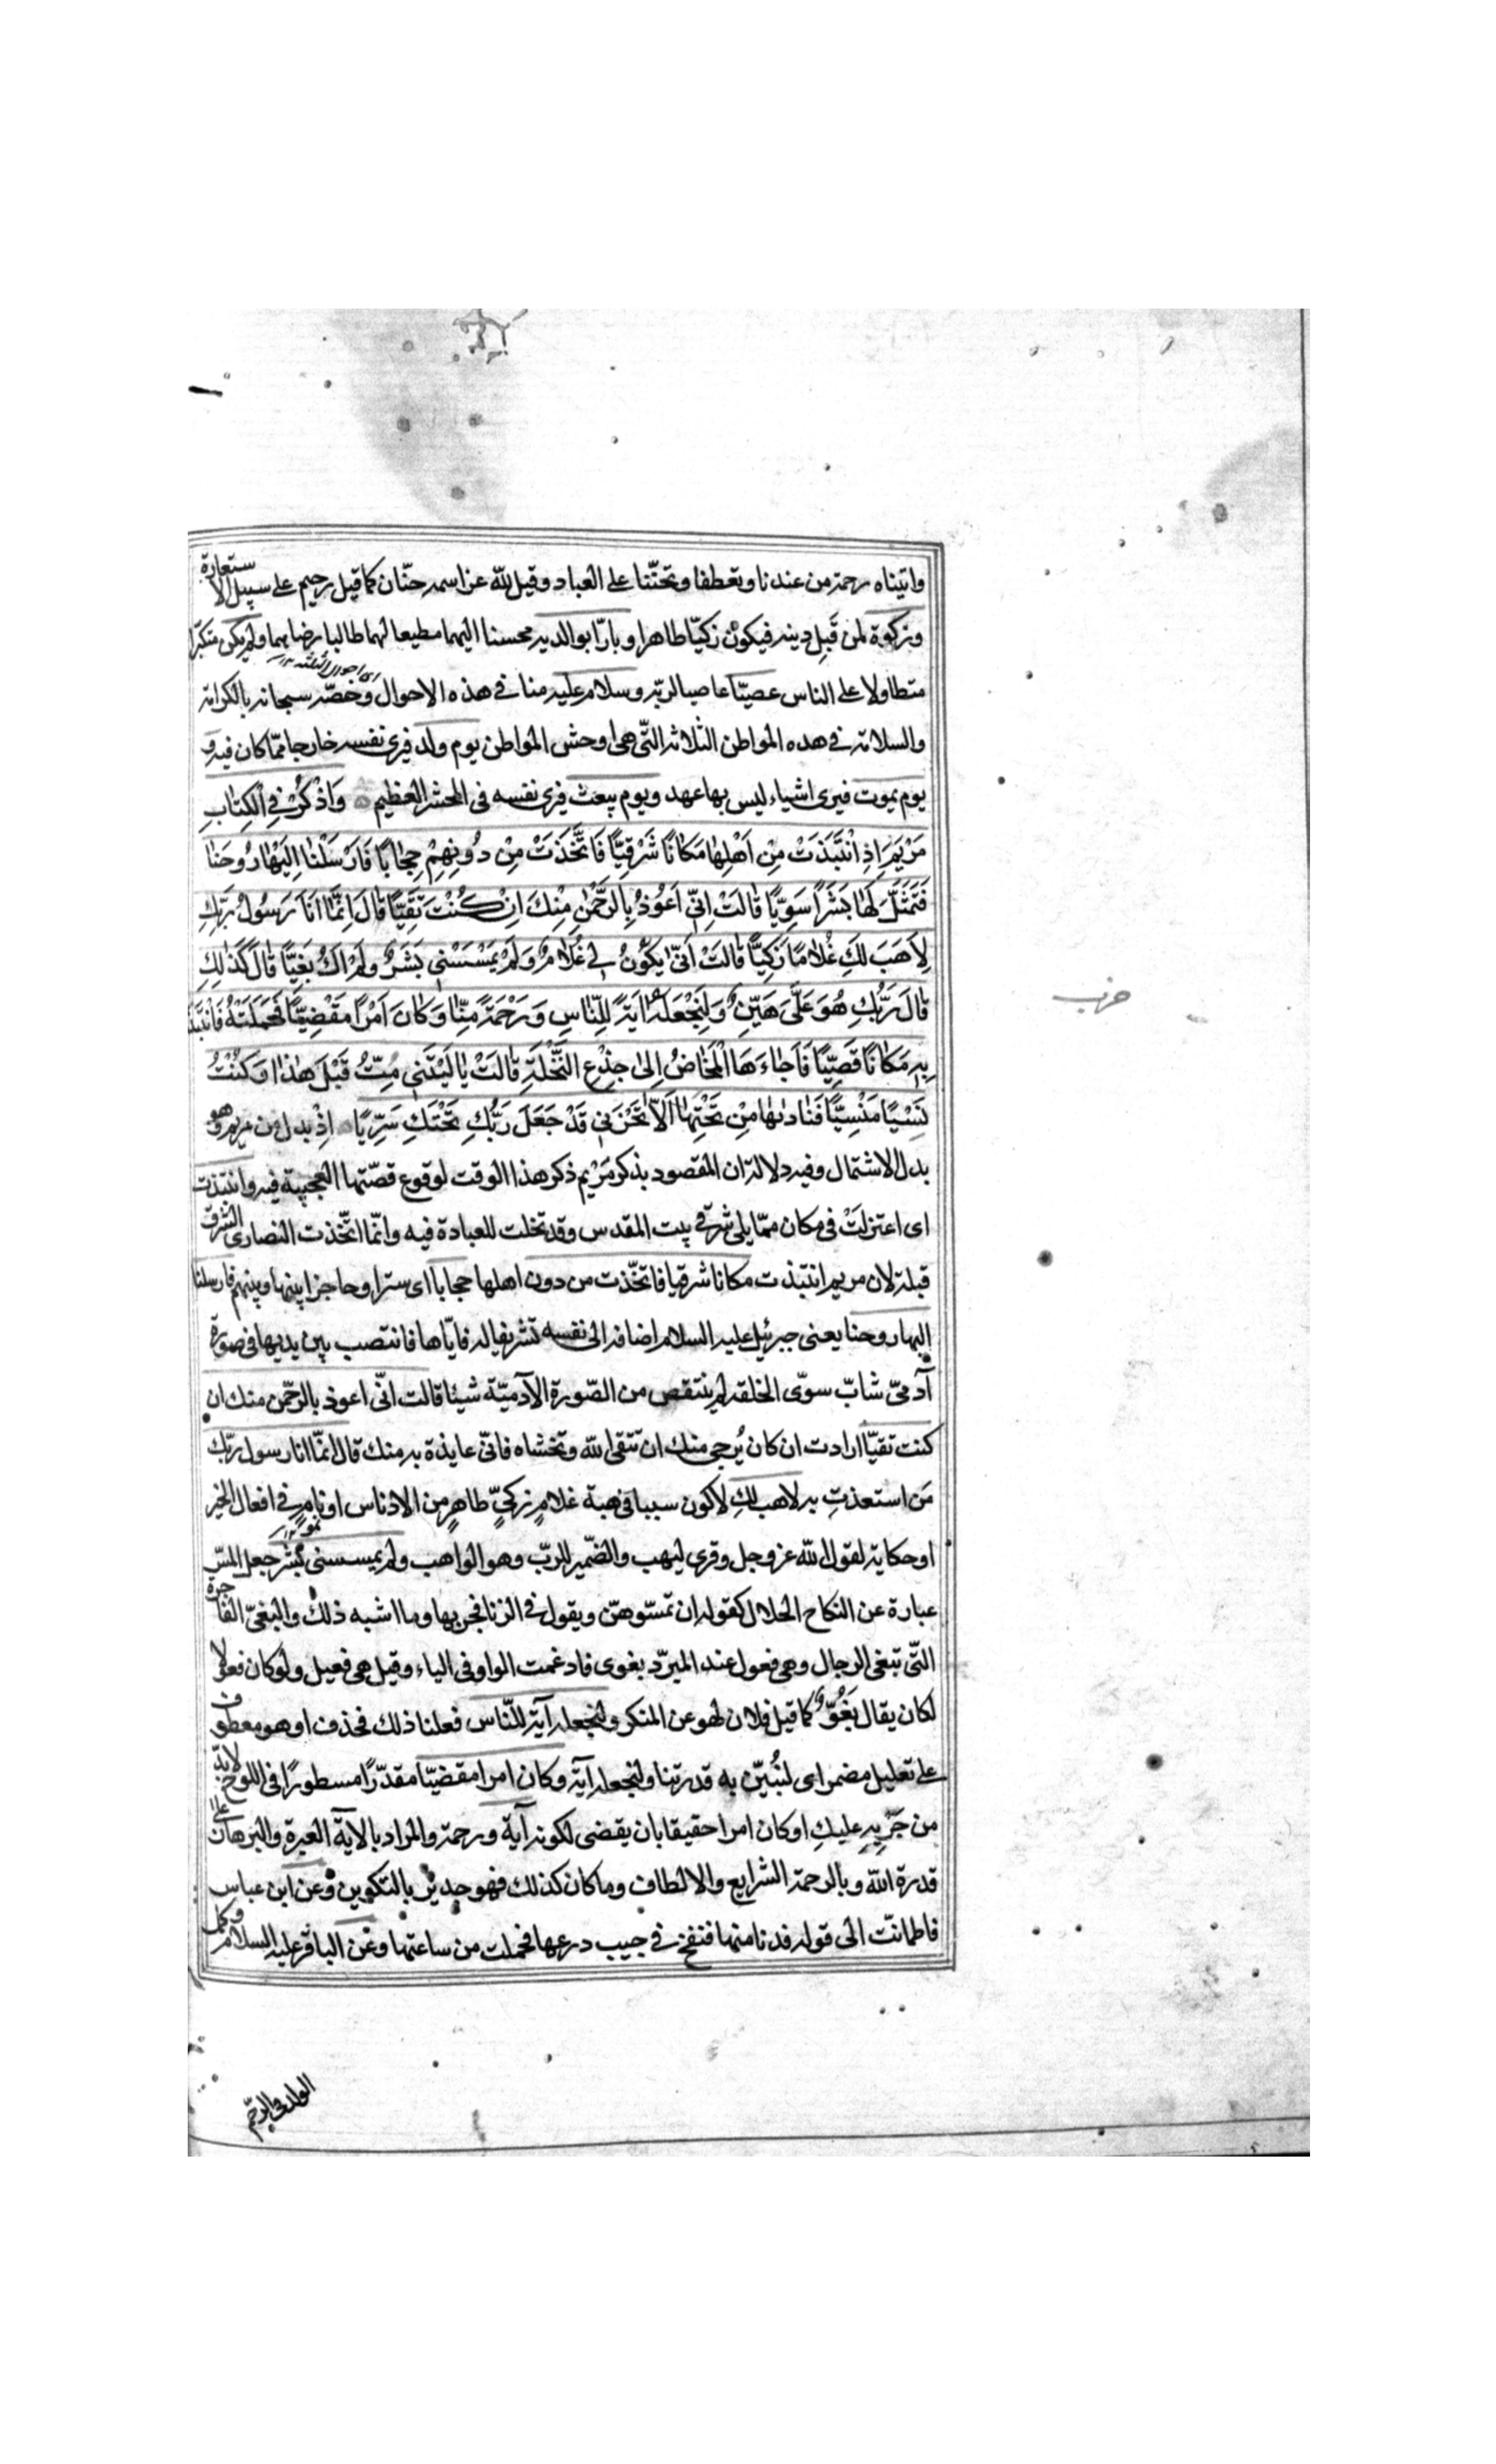 واتيناه رحمة من عندنا وتعطفا وتحنّنا على العباد وقيل لله عز اسمه حنّان كما قيل رحيم على سبيل الاستعارة
وزكوة لمن قَبِل دينه فيكون زكيّا طاهرا وبارّا بوالديه محسنا اليهما مطيعا لهما طالبا رضاهما ولم يكن متكبرّا
متطاولا على الناس عصيّا عاصيا لربّه وسلام عليه منا فى هذه الاحوال وخصّه سبحانه بالكرامة
والسلامة فى هذه المواطن الثلاثة التّى هى اوحش المواطن يوم ولد فيرى نفسه خارجا ممّا كان فيه و
يوم يموت فيرى اشياء ليس بها عهد ويوم يبعث فيرى نفسه فى المحشر العظيم وَاذْكُرْ فِى الْكِتٰابِ
مَرْيَمَ اِذِ انْتَبَذَتْ مِنْ اَهْلِهٰا مَكٰانًا شَرْقِيًّا فَاتَّخَذَتْ مِنْ دُونِهِمْ حِجٰابًا فَاَرْسَلْنٰا اِلَيْهٰا رُوحَنٰا
فَتَمَثَّلَ لَهٰا بَشَرًا سَوِيًّا قٰالَتْ اِنّى اَعُوذُ بِالرَّحْمٰنِ مِنْكَ اِنْ كُنْتَ تَقِيًّا قٰالَ اِنَّمٰا اَنَا رَسُولُ رَبِّكِ
لِاَهَبَ لَكِ غُلٰامًا زَكِيًّا قٰالَتْ اَنّىٰ يَكُونُ لى غُلٰامٌ وَلَمْ يَمْسَسْنى بَشَرٌ وَلَمْ اَكُ بَغِيًّا قٰالَ كَذٰلِكِ
قٰالَ رَبُّكِ هُوَ عَلَىَّ هَيِّنٌ وَلِنَجْعَلَهُ اٰيَةً لِلنّٰاسِ وَرَحْمَةً مِنّٰا وَكٰانَ اَمْرًا مَقْضِيًّا فَحَمَلَتْهُ فَانْتَبَذَتْ
بِهِ مَكٰانًا قَصِيًّا فَاَجٰاءَهَا الْمَخٰاضُ اِلىٰ جِذْعِ النَّخْلَةِ قٰالَتْ يٰا لَيْتَنى مِتُّ قَبْلَ هٰذٰا وَكُنْتُ
نَسْيًا مَنْسِيًّا فَنٰادٰيهٰا مِنْ تَحْتِهٰا اَلّٰا تَحْزَنى قَدْ جَعَلَ رَبُّكِ تَحْتَكِ سَرِيًّا اِذْ بدل من مريم وهو
بدل الاشتمال وفيه دلالة ان المقصود بذكر مَرْيم ذكر هذا الوقت لوقوع قصّتها العجيبة فيه وانتبذت
اى اعتزلَتْ فى مكان ممّا يلى شرقى بيت المقدس وقد تخلت للعبادة فيه وانّما اتّخذت النصارى الشرق
قبلة لان مريم انتبذت مكانا شرقيا فاتخّذت من دون اهلها حجابا اى سترا وحاجزا بينها وبينهم فارسلنا
اليها روحنا يعنى جبرئيل عليه السلام اضافه الى نفسه تشريفا له فايّاها فانتصب بين يديها فى صورة
آدمىّ شابّ سوّى الخلقه لم ينتقص من الصّورة الآدميّة شيئا قالت انّى اعوذ بالرحّمن منك ان
كنت تقيّا ارادت ان كان يُرجى منك ان تتقى الله وتخشاه فانّى عايذة به منك قال انمّا انا رسول ربّك
مَن استعذتِ به لاهب لكِ لاكون سببا فى هبة غلامٍ زكىٍّ طاهرٍ من الادناس او نامٍ فى افعال الخير
او حكاية لقول الله عز وجل وقرى ليهب والضّمير للربّ وهو الواهب ولم يمسسنى بشر جعل المسّ
عبارة عن النكاح الحلال كقوله ان تمسّوهنّ ويقول فى الزنا فجر بها وما اشبه ذلك والبغىّ الفاجرة
التّى تبغى الرجال وهى فعول عند المبرّد بغوى فادغمت الواو فى الياء وقيل هى فعيل ولو كان فعولا
لكان يقال بَغُوّ كما قيل فلان نهو عن المنكر ولنجعله آية للنّاس فعلنا ذلك فحذف او هو معطوف
على تعليل مضمر اى لنُبيّن به قدرتنا ولنجعله آية وكان امرا مقضيّا مقدّرًا مسطورًا فى اللوح لا بدّ
من جَرْيِهِ عليكِ او كان امرا حقيقا بان يقضى لكونه آية ورحمة والمراد بالاية العبرة والبرهان على
قدرة الله وبالرحمة الشرايع والالطاف وما كان كذلك فهو جدير بالتكوين وعن ابن عباس
فاطمانّت الى قوله فدنا منها فنفخ فى جيب درعها فحملت من ساعتها وعن الباقر عليه السلام وكمل
الولد فى الرحّم
حزب